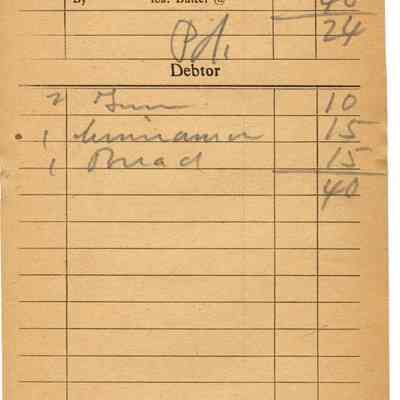 By lbs. Butter @ 40
24
Pd.
Debtor
2 Gum 10
1 Cinnamon 15
1 Bread 15
40